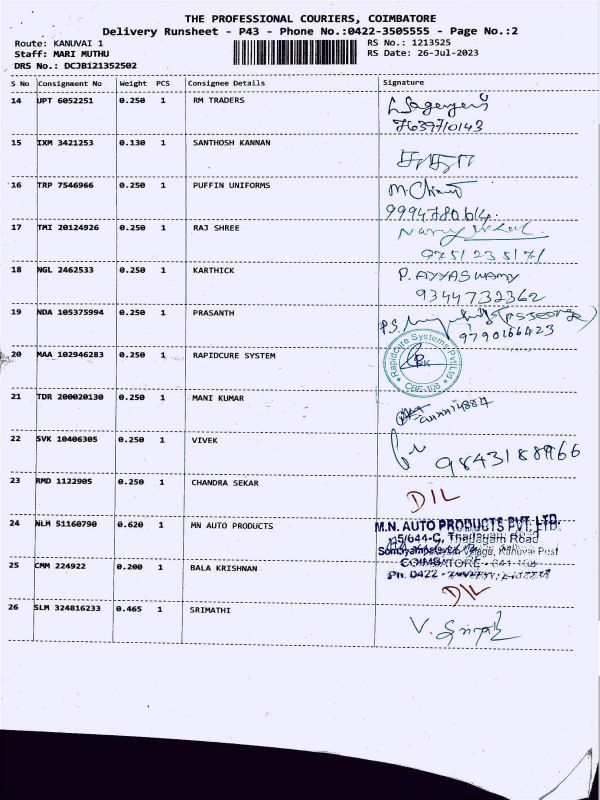 THE PROFESSIONAL COURIERS, COIMBATORE
Delivery Runsheet - P43 - Phone No.:0422-3505555 - Page No.:2
Route: KANUVAI 1 RS No.: 1213525
Staff: MARI MUTHU RS Date: 26-Jul-2023
DRS No.: DCJB121352502
S No Consignment No Weight PCS Consignee Details Signature
14 UPT 6052251 0.250 1 RM TRADERS
7639710143
15 IXM 3421253 0.130 1 SANTHOSH KANNAN
16 TRP 7546966 0.250 1 PUFFIN UNIFORMS
9994780614
17 TMI 20124926 0.250 1 RAJ SHREE
9751235171
18 NGL 2462533 0.250 1 KARTHICK P. AYYASWAMY
9344732362
19 NDA 105375994 0.250 1 PRASANTH P.S.
9790166423
20 MAA 102946283 0.250 1 RAPIDCURE SYSTEM Rapidcure Systems Pvt Ltd CBE-108
21 TDR 200020130 0.250 1 MANI KUMAR
22 SVK 10406305 0.250 1 VIVEK
23 RMD 1122905 0.250 1 CHANDRA SEKAR DIL
24 NLM 51160790 0.620 1 MN AUTO PRODUCTS M.N. AUTO PRODUCTS PVT. LTD.
5/644-C, Thadagam Road
Village, Kanuvai Post
COIMBATORE - 641 108
Ph: 0422 -
25 CMM 224922 0.200 1 BALA KRISHNAN DIL
26 SLM 324816233 0.465 1 SRIMATHI V.